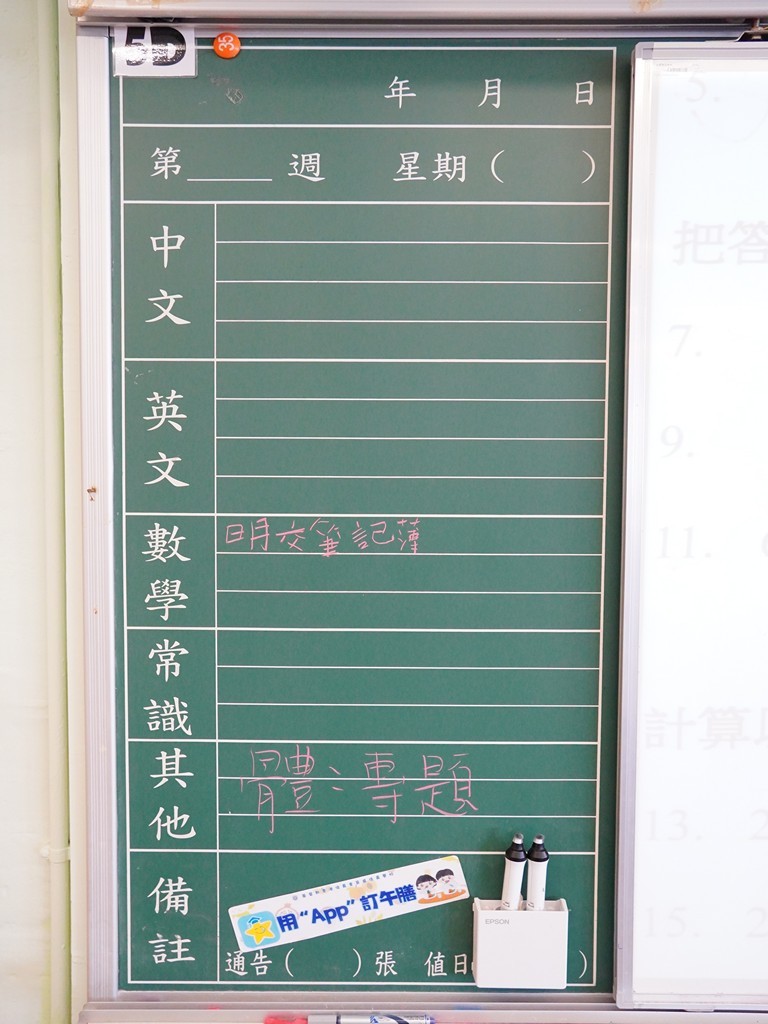 5D
35
年 月 日
第____週 星期（ ）
中文
英文
數學
明交筆記簿
常識
其他
體：專題
備註
用“App”訂午膳
EPSON
通告（ ）張 值日 ）
5.
把答
7.
9.
11.
計算
13. 2
15. 2